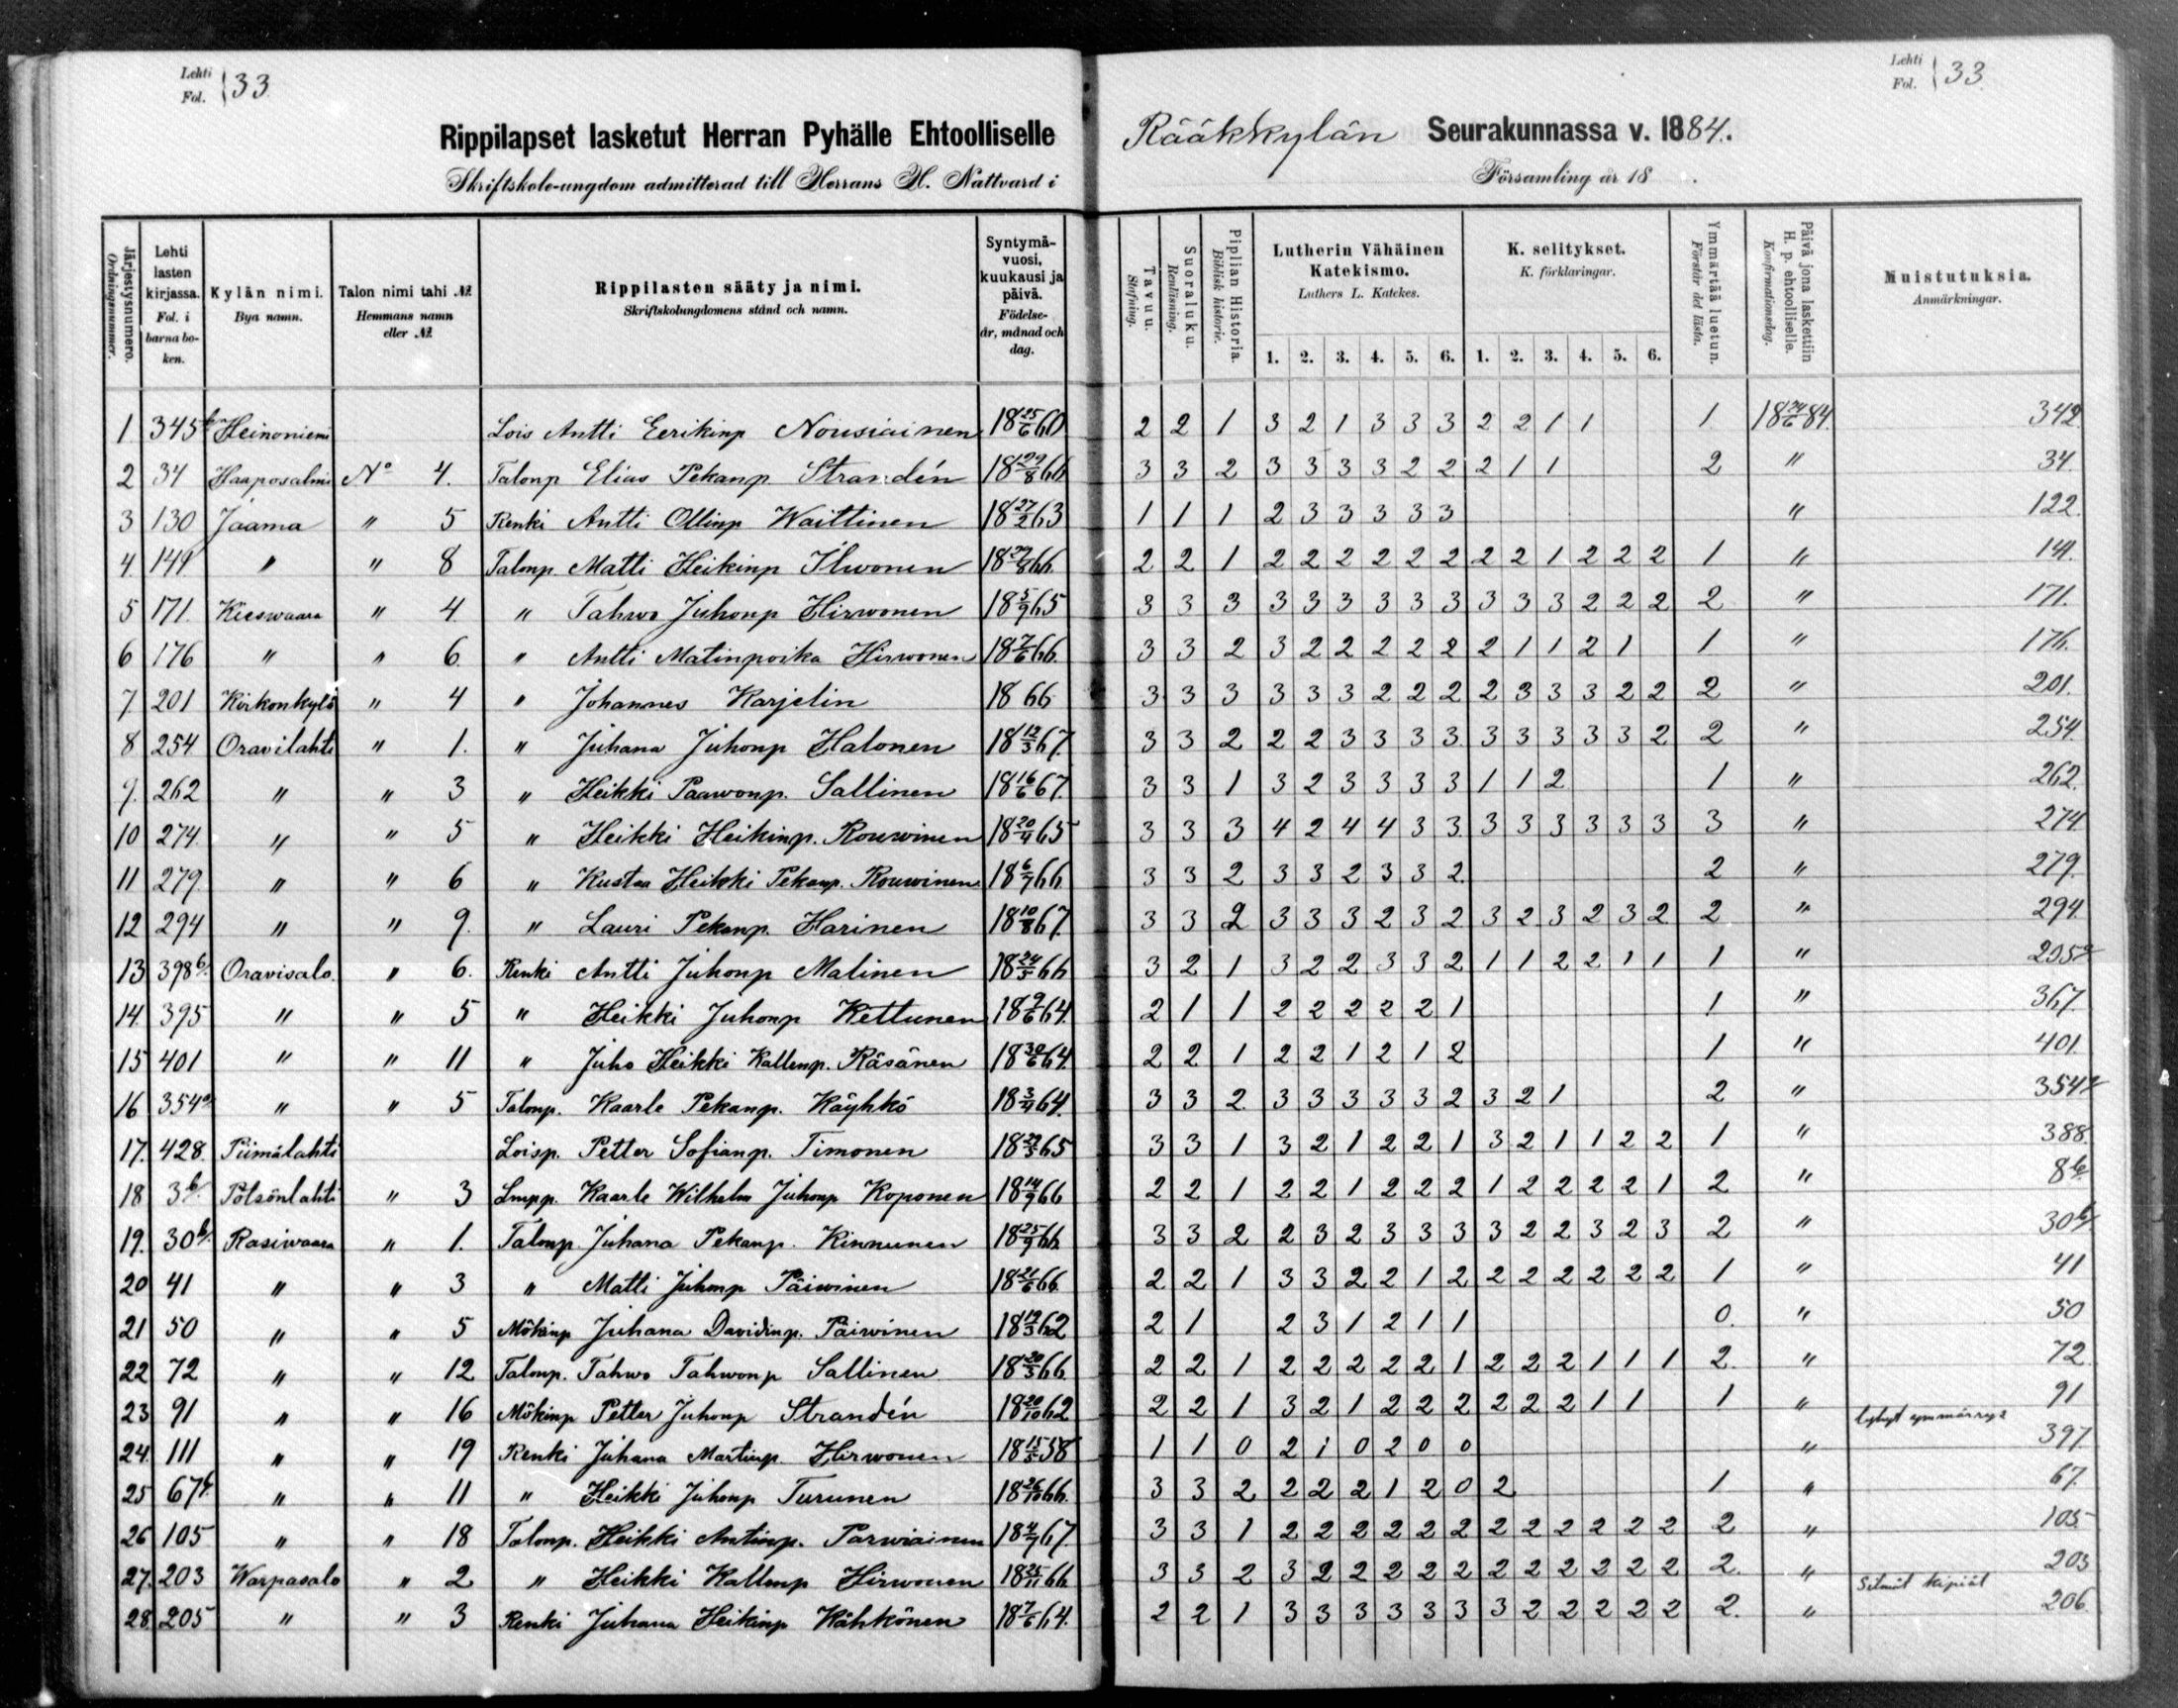 Lehti Fol. 33
Lehti Fol. 33
Rippilapset lasketut Herran Pyhälle Ehtoolliselle Rääkkylän Seurakunnassa v. 1884.
Skriftskole-ungdom admitterad till Herrans H. Nattvard i Församling år 18 .
Järjestysnumero. Ordningsnummer. | Lehti lasten kirjassa. Fol. i barna boken. | Kylän nimi. Bya namn. | Talon nimi tahi №. Hemmans namn eller №. | Rippilasten sääty ja nimi. Skriftskolungdomens stånd och namn. | Syntymävuosi, kuukausi ja päivä. Födelseår, månad och dag. | Tavuu. Stafning. | Suoraluku. Renläsning. | Piplian Historia. Biblisk historie. | Lutherin Vähäinen Katekismo. Luthers L. Katekes. 1. 2. 3. 4. 5. 6. | K. selitykset. K. förklaringar. 1. 2. 3. 4. 5. 6. | Ymmärtää luetun. Förstår det lästa. | Päivä jona laskettiin H. p. ehtoolliselle. Konfirmationsdag. | Muistutuksia. Anmärkningar.
1 345b Heinoniemi Lois Antti Eerikinp Nousiainen 18 25/6 60 2 2 1 3 2 1 3 3 3 2 2 1 1 1 18 24/6 84. 342
2 34 Haaposalmi No 4. Talonp Elias Pekanp. Strandén 18 29/8 66 3 3 2 3 3 3 3 2 2 2 1 1 2 " 34
3 130 Jaama " 5 Renki Antti Ollinp Waittinen 18 27/2 63 1 1 1 2 3 3 3 3 3 " 122.
4. 149 " " 8 Talonp. Matti Heikinp Ilwonen 18 29/8 66 2 2 1 2 2 2 2 2 2 2 2 1 2 2 2 1 "
5 171. Kieswaara " 4. " Tahwo Juhonp Hirwonen 18 5/9 65 3 3 3 3 3 3 3 3 3 3 3 3 2 2 2 2 " 171.
6 176 " " 6. " Antti Matinpoika Hirwonen 18 7/6 66. 3 3 2 3 2 2 2 2 2 2 1 1 2 1 1 " 176.
7. 201 Kirkonkylä " 4 " Johannes Karjelin 18 66 3 3 3 3 3 3 2 2 2 2 3 3 3 2 2 2 " 201.
8 254 Oravilahti " 1. " Juhana Juhonp Halonen 18 12/3 67. 3 3 2 2 2 3 3 3 3 3 3 3 3 3 2 2 " 254.
9. 262 " " 3 " Heikki Paawonp. Sallinen 18 16/6 67. 3 3 1 3 2 3 3 3 3 1 1 2 1 " 262.
10 274. " " 5 " Heikki Heikinp. Rouwinen 18 20/4 65 3 3 3 4 2 4 4 3 3 3 3 3 3 3 3 3 " 274
11 279. " " 6 " Kustaa Heikki Pekanp. Rouwinen 18 6/7 66 3 3 2 3 3 2 3 3 2 2 " 279.
12 294 " " 9. " Lauri Pekanp. Harinen 18 10/8 67. 3 3 2 3 3 3 2 3 2 3 2 3 2 3 2 2 " 294.
13 398b. Oravisalo " 6. Renki Antti Juhonp Malinen 18 24/5 66 3 2 1 3 2 2 3 3 2 1 1 2 2 1 1 1 "
14. 395 " " 5 " Heikki Juhonp Kettunen 18 9/6 64. 2 1 1 2 2 2 2 2 1 1 " 367.
15 401 " " 11 " Juho Heikki Kallenp. Räsänen 18 30/6 64. 2 2 1 2 2 1 2 1 2 1 " 401.
16 354a " " 5 Talonp. Kaarle Pekanp. Käyhkö 18 3/4 64. 3 3 2 3 3 3 3 3 2 3 2 1 2 " 354a
17. 428. Piimälahti Loisp. Petter Sofianp. Timonen 18 29/3 65 3 3 1 3 2 1 2 2 1 3 2 1 1 2 2 1 " 388.
18 3b. Pötsönlahti " 3 Lmpp. Kaarle Wilhelm Juhonp Koponen 18 14/9 66 2 2 1 2 2 1 2 2 2 1 2 2 2 2 1 2 " 8b
19. 30b. Rasiwaara " 1. Talonp. Juhana Pekanp. Kinnunen 18 25/9 66. 3 3 2 2 3 2 3 3 3 3 2 2 3 2 3 2 " 30b.
20 41 " " 3 " Matti Juhonp Päiwinen 18 21/6 66. 2 2 1 3 3 2 2 1 2 2 2 2 2 2 2 1 " 41
21 50 " " 5 Mökinp Juhana Davidinp. Päiwinen 18 19/3 62 2 1 2 3 1 2 1 1 0. " 50
22 72 " " 12 Talonp. Tahwo Tahwonp Sallinen 18 20/3 66. 2 2 1 2 2 2 2 2 1 2 2 2 1 1 1 2. " 72.
23 91 " " 16 Mökinp Petter Juhonp Strandén 18 20/10 62 2 2 1 3 2 1 2 2 2 2 2 2 1 1 1 " 91
24. 111 " " 19 Renki Juhana Martinp. Hirwonen 18 15/5 58 1 1 0 2 1 0 2 0 0 " lyhyt ymmärrys 397.
25 67b. " " 11 " Heikki Juhonp Turunen 18 26/10 66. 3 3 2 2 2 2 1 2 0 2 1 " 67.
26 105 " " 18 Talonp. Heikki Antinp. Parwiainen 18 4/7 67. 3 3 1 2 2 2 2 2 2 2 2 2 2 2 2 2 " 105
27. 203 Warpasalo " 2 " Heikki Kallenp Hirwonen 18 25/11 66 3 3 2 3 2 2 2 2 2 2 2 2 2 2 2 2. " 203
28. 205 " " 3 Renki Juhana Heikinp Kähkönen 18 7/6 64. 2 2 1 3 3 3 3 3 3 3 2 2 2 2 2 2. " Silmät kipiät 206.